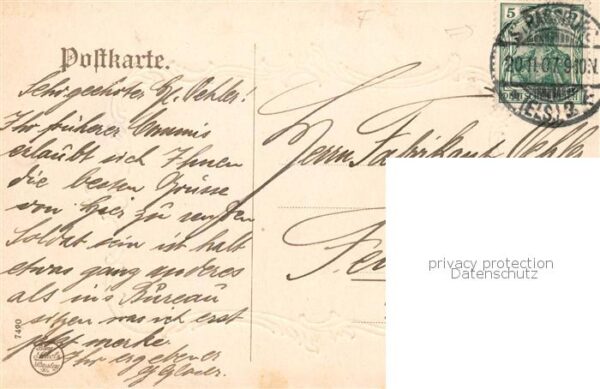 Postkarte.
Sehr geehrter H. Oehler!
Ihr früherer Commis
erlaubt sich Ihnen
die besten Grüsse
von hier zu senden
Soldat sein ist halt
etwas ganz anderes
als in's Bureau
sitzen was ich erst
jetzt merke.
Ihr ergebener
Herrn Fabrikant Oehler
5
20.11.07.9-10.N.
(ELS.)
privacy protection
Datenschutz
7490